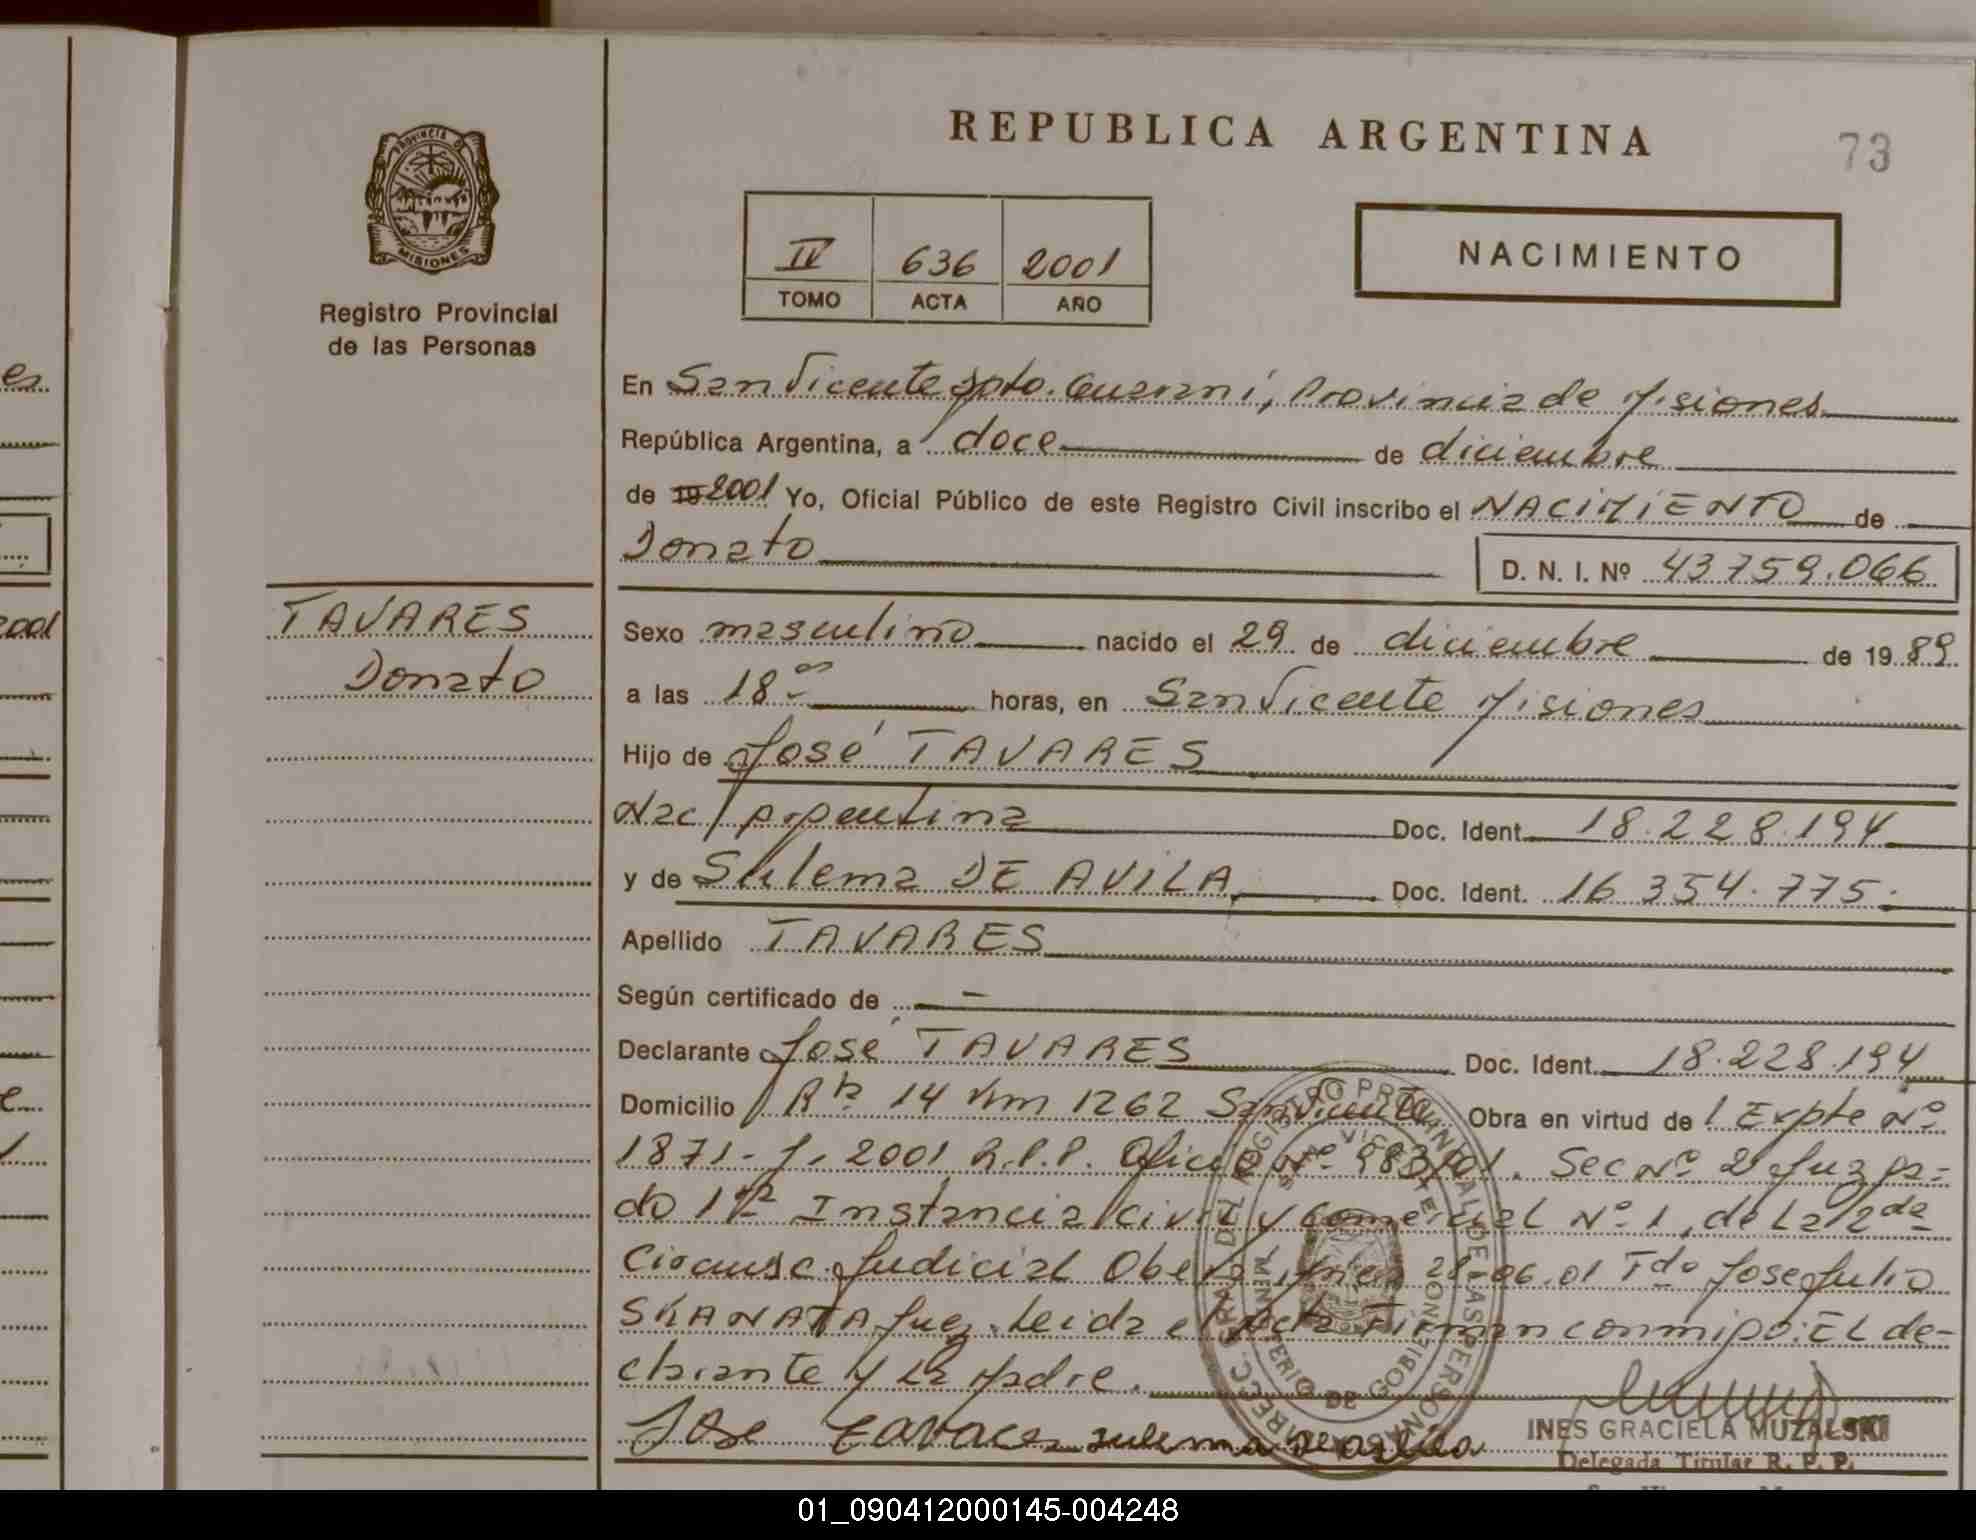 REPUBLICA ARGENTINA
73
PROVINCIA DE
MISIONES
Registro Provincial
de las Personas
IV 636 2001
TOMO ACTA AÑO
NACIMIENTO
En San Vicente Dpto. Guaraní, Provincia de Misiones
República Argentina, a doce de diciembre
de 19 2001 Yo, Oficial Público de este Registro Civil inscribo el NACIMIENTO de
Donato
D. N. I. Nº 43759.066
TAVARES
Donato
Sexo masculino nacido el 29 de diciembre de 19 89
a las 18 00 horas, en San Vicente Misiones
Hijo de José TAVARES
Nac/ Argentina Doc. Ident. 18.228.194
y de Sulema DE AVILA Doc. Ident. 16 354.775.
Apellido TAVARES
Según certificado de —
Declarante José TAVARES Doc. Ident. 18.228.194
Domicilio Rta 14 Km 1262 San Vicente Obra en virtud de / Expte Nº
1871-J-2001 R.P.P. Oficio Nº 983/01. Sec Nº 2 Juzga=
do 1ra Instancia Civil y Comercial Nº 1, de La 2da
Circunsc. Judicial Obera, Mnes 28-06.01 Fdo Jose Julio
SKANATA Juez. Leida el Acta Firman conmigo: EL de=
clarante y La Madre.
Jose Tavares sulema de avila
INES GRACIELA MUZALSKI
Delegada Titular R. P. P.
DIRECC. GRAL. DEL REGISTRO PROVINCIAL DE LAS PERSONAS
SAN VICENTE
MINISTERIO DE GOBIERNO
es
2001
e
01_090412000145-004248